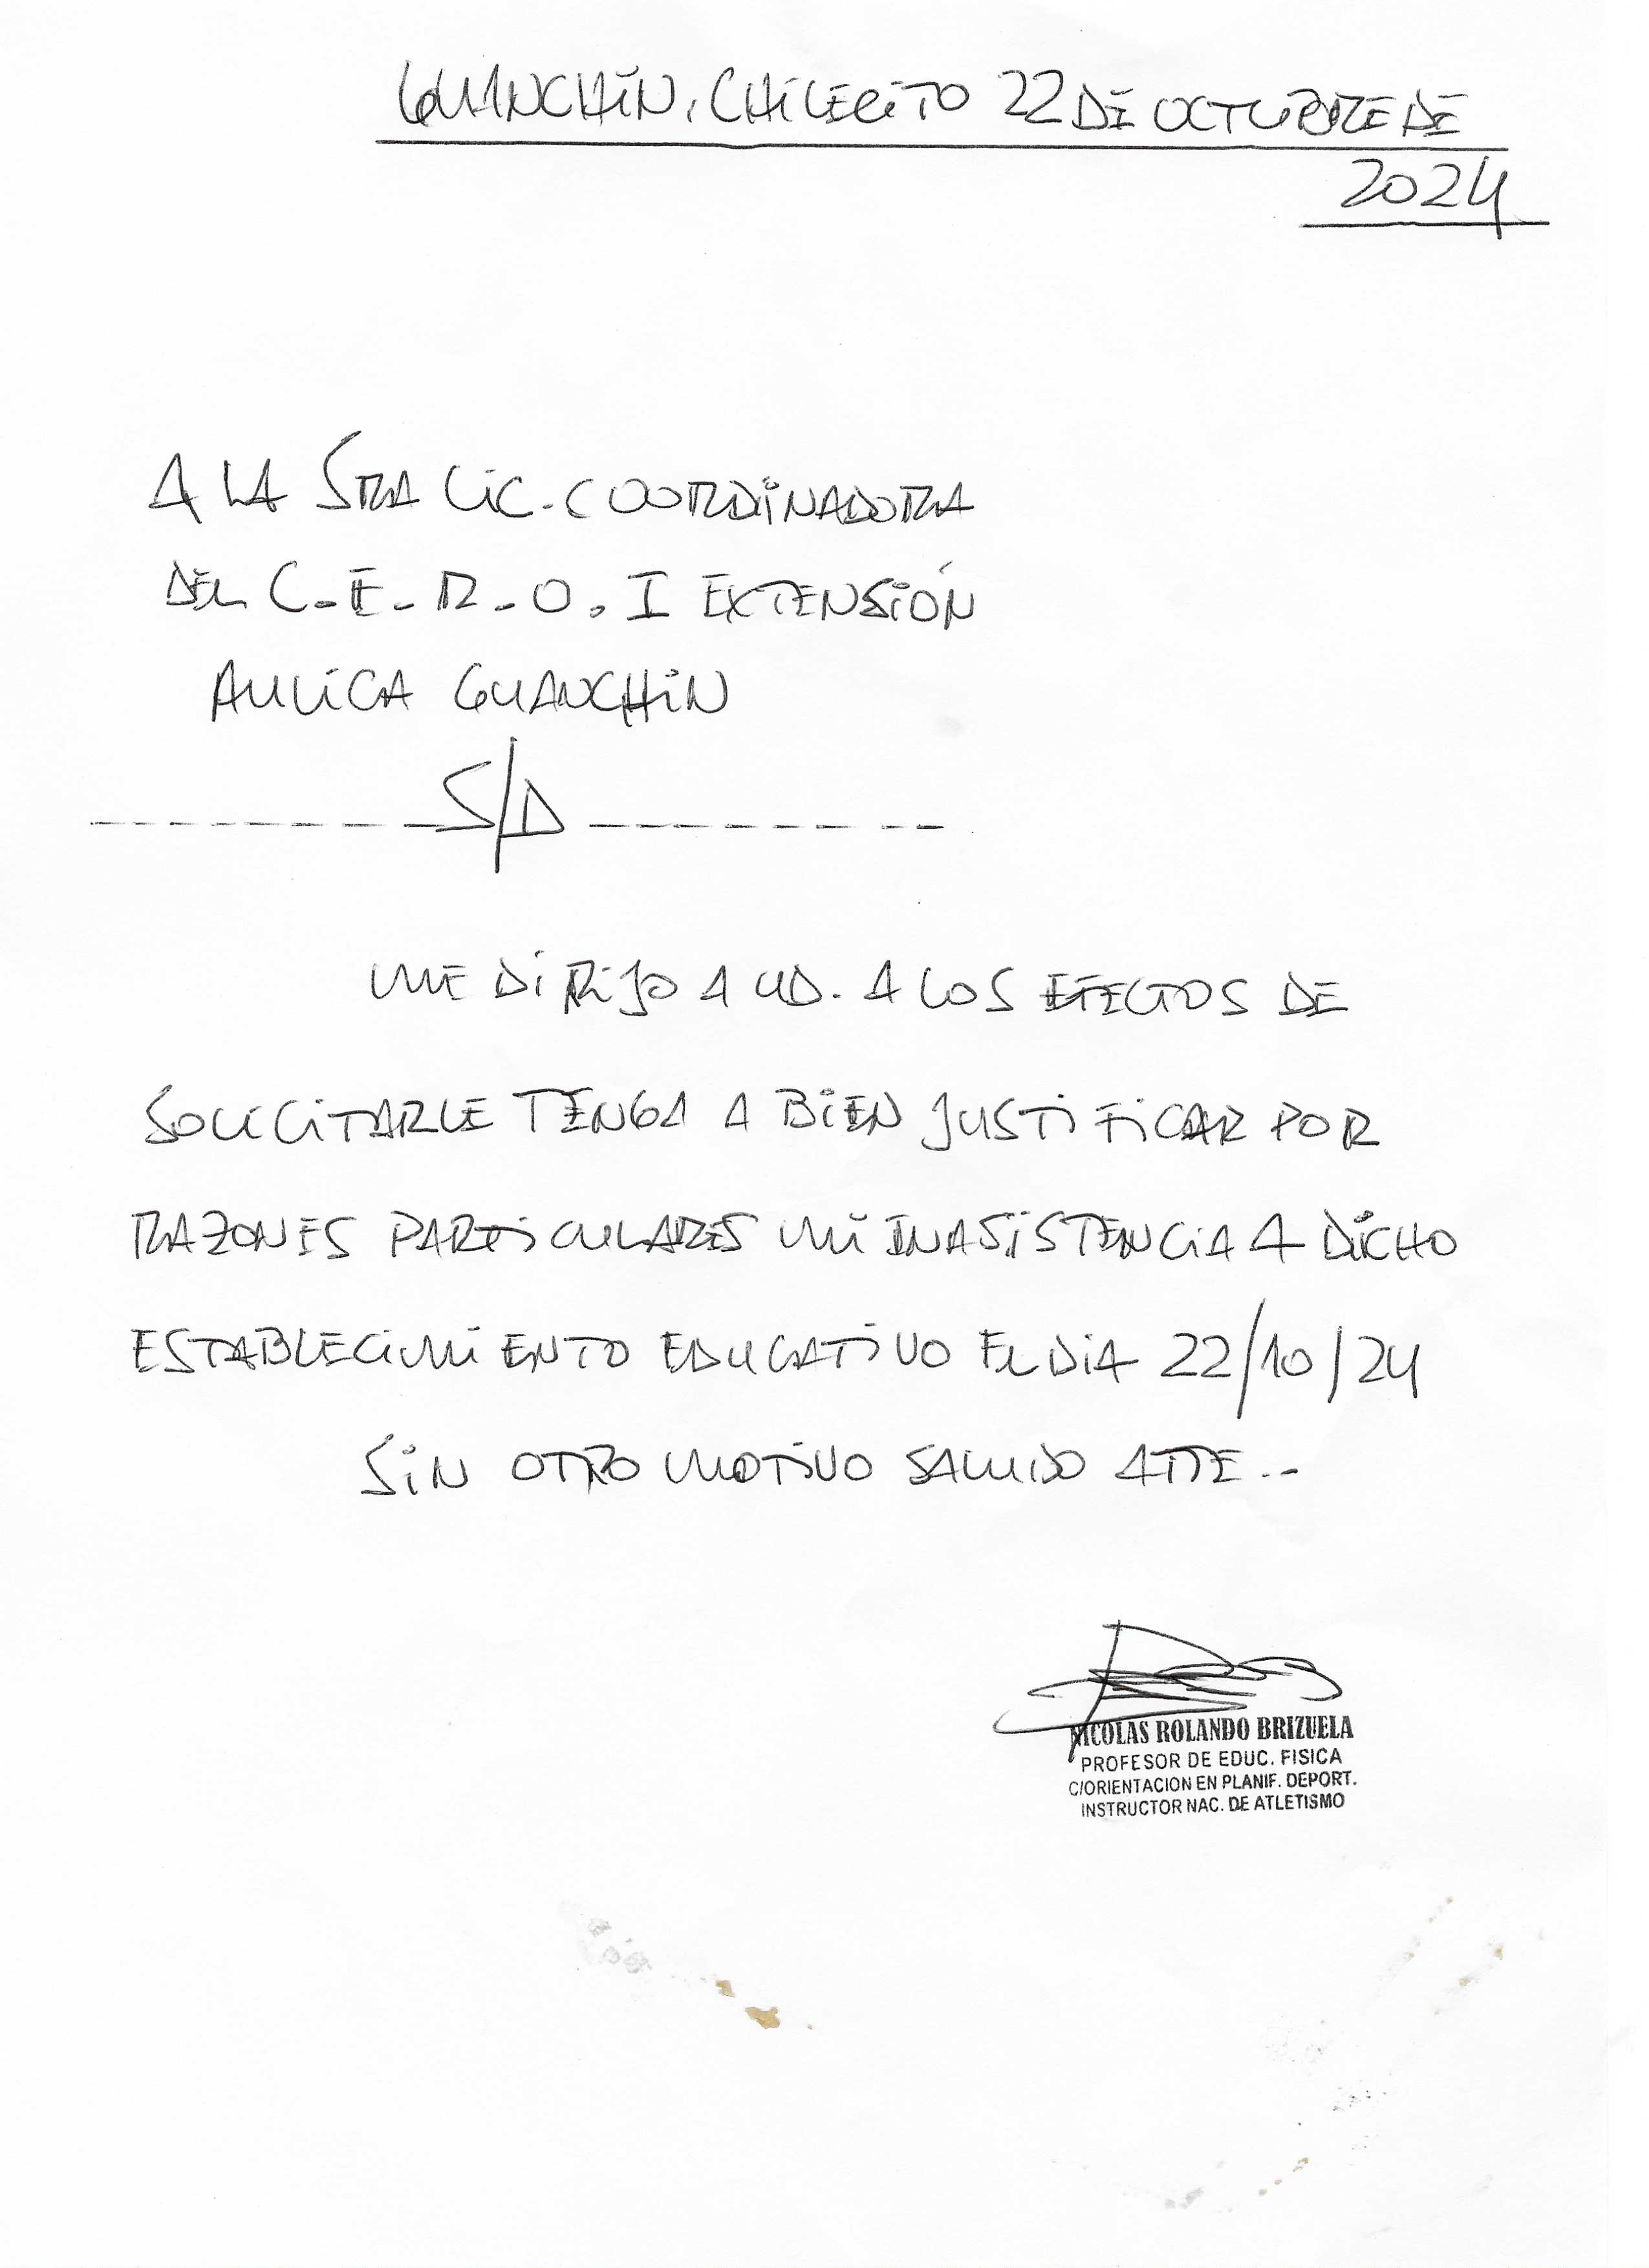 GUANCHIN, CHILECITO 22 DE OCTUBRE DE
2024
A LA SRA LIC. COORDINADORA
DEL C-E-R-O. I EXTENSIÓN
AULICA GUANCHIN
S/D
ME DIRIJO A UD. A LOS EFECTOS DE
SOLICITARLE TENGA A BIEN JUSTIFICAR POR
RAZONES PARTICULARES MI INASISTENCIA A DICHO
ESTABLECIMIENTO EDUCATIVO EL DIA 22/10/24
SIN OTRO MOTIVO SALUDO ATTE..-
NICOLAS ROLANDO BRIZUELA
PROFESOR DE EDUC. FISICA
C/ORIENTACION EN PLANIF. DEPORT.
INSTRUCTOR NAC. DE ATLETISMO